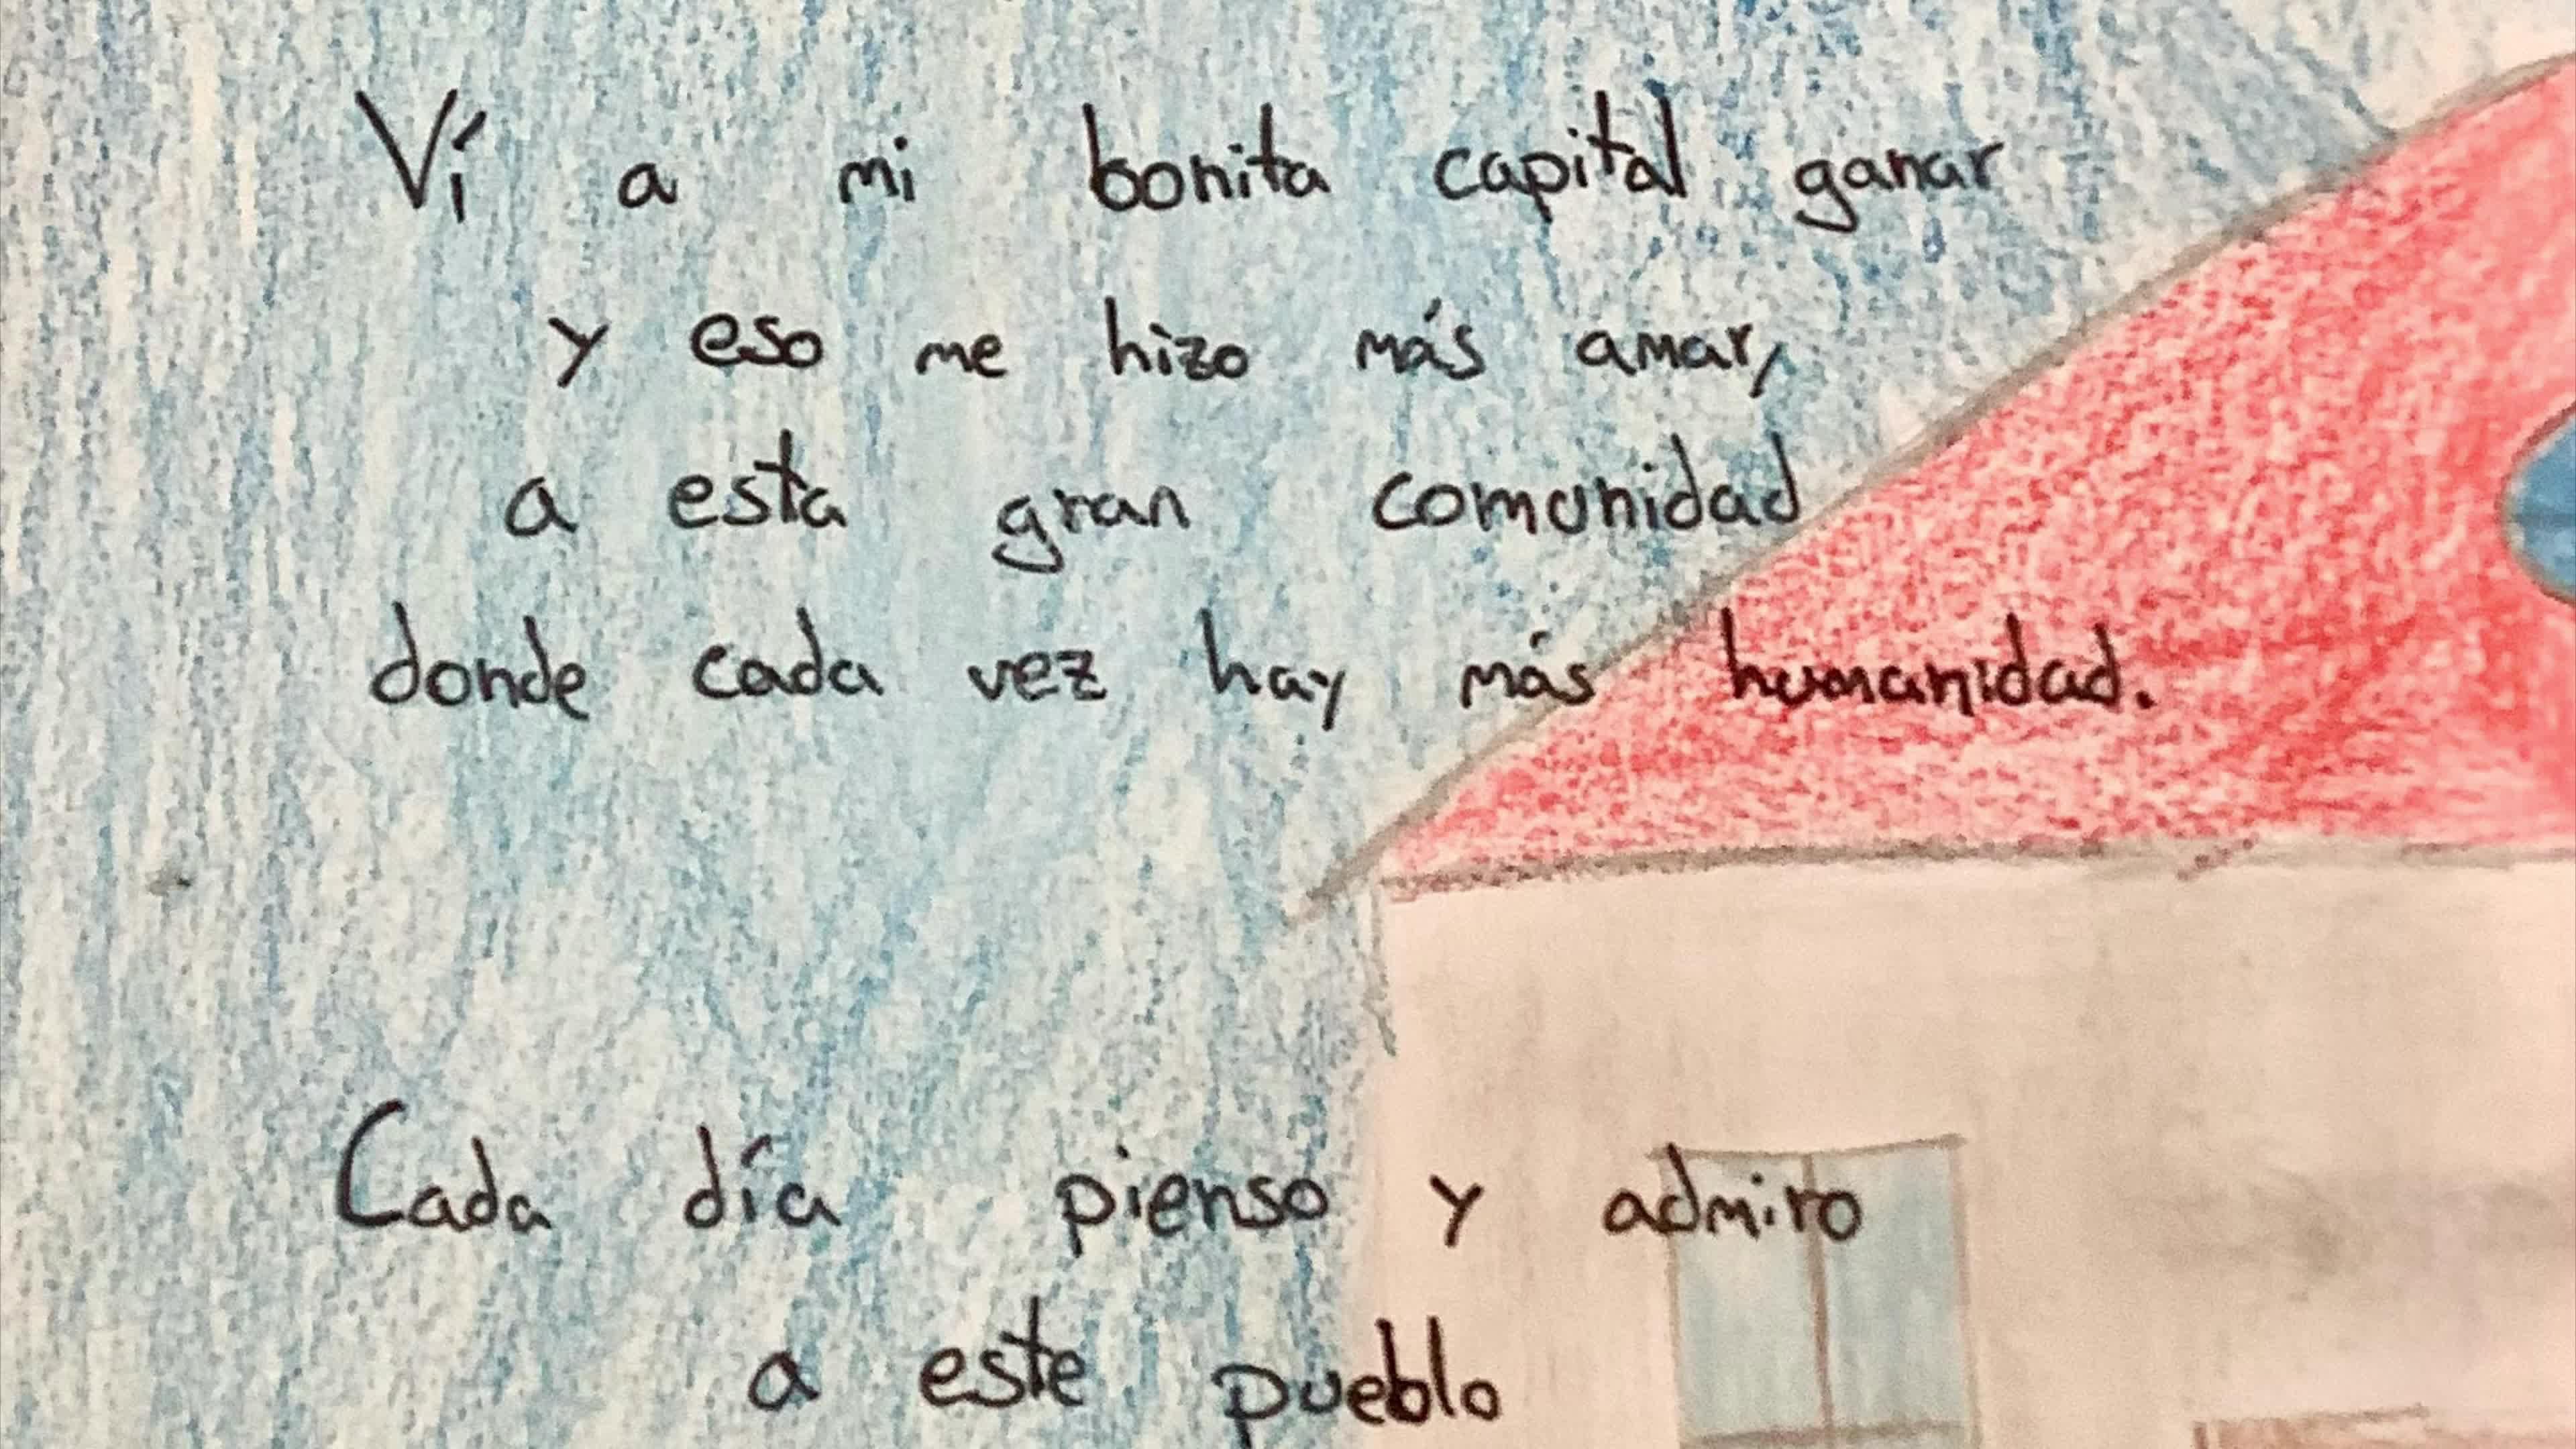 Ví a mi bonita capital ganar
y eso me hizo más amar,
a esta gran comunidad
donde cada vez hay más humanidad.
Cada día pienso y admiro
a este pueblo